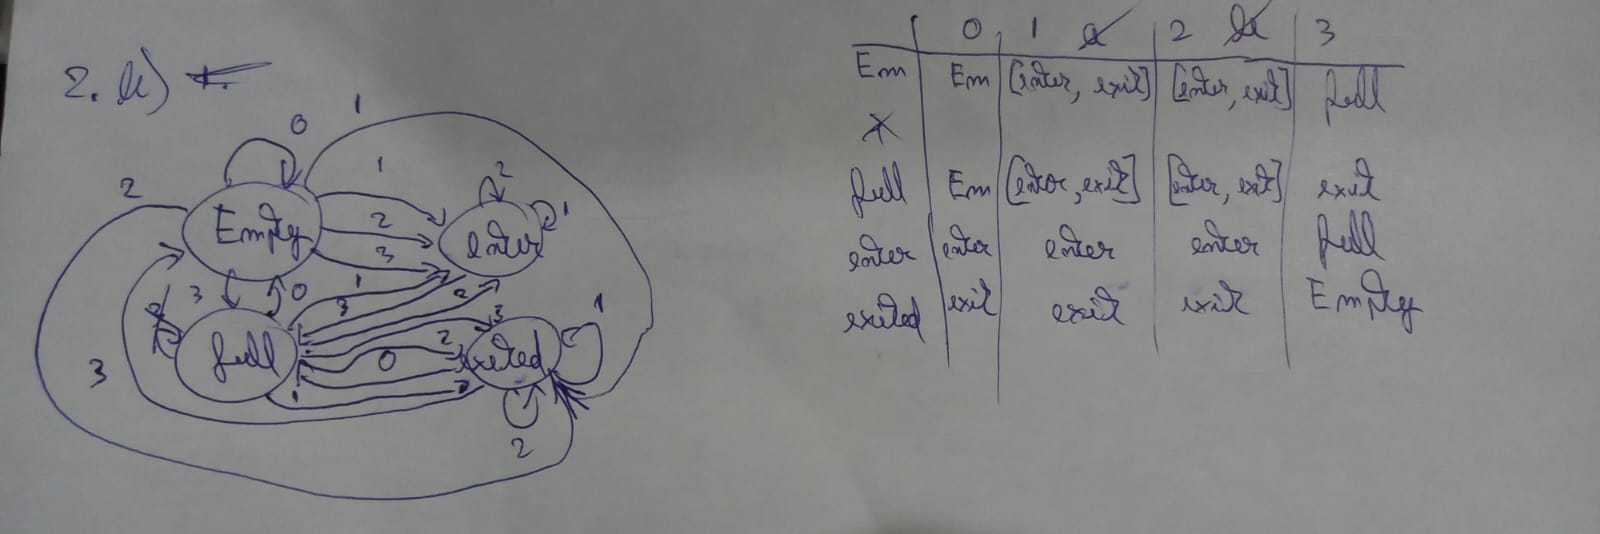 2. b)
0
1
2
1
2
3
2
1
Empty
enter
3
0
1
3
2
3
full
2
0
1
exited
1
3
2
0 1 2 3
Em Em [enter, exit] [enter, exit] full
full Em [enter, exit] [enter, exit] exit
enter enter enter enter full
exited exit exit exit Empty